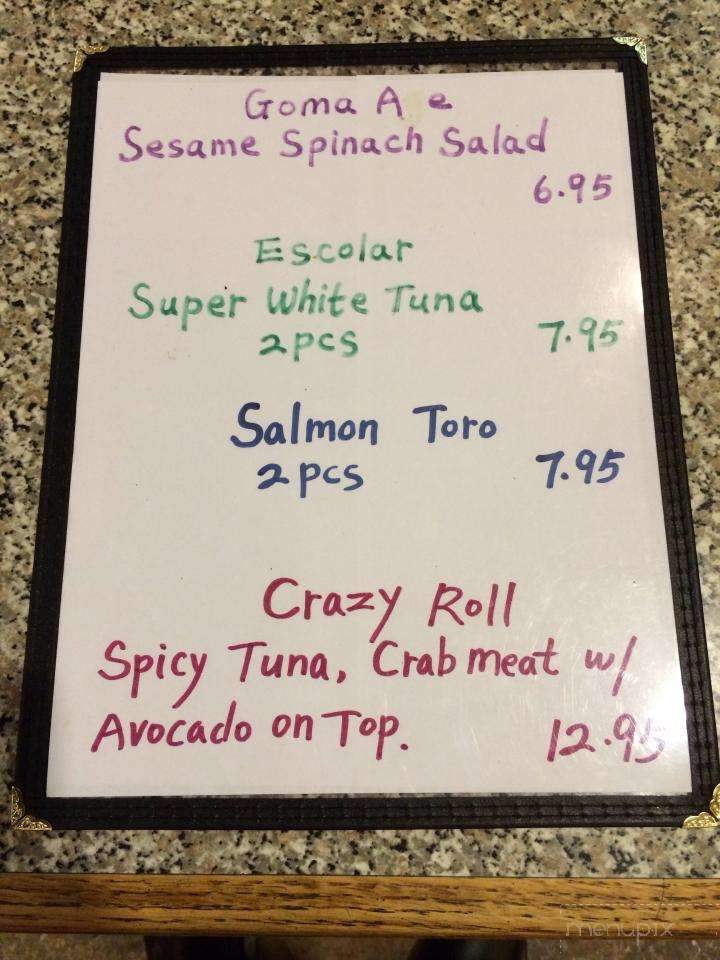 Goma A e
Sesame Spinach Salad
6.95
Escolar
Super White Tuna
2pcs 7.95
Salmon Toro
2pcs 7.95
Crazy Roll
Spicy Tuna, Crab meat w/
Avocado on Top. 12.95
menupix